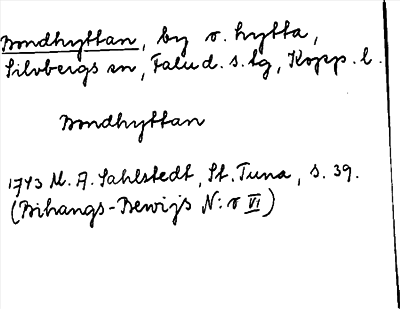 Bondhyttan, by o. hytta,
Silvbergs sn, Falu d. s. tg, Kopp. l.
Bondhyttan
1743 M. A. Sahlstedt, St. Tuna, s. 39.
(Bihangs-Bewijs N:o VI)